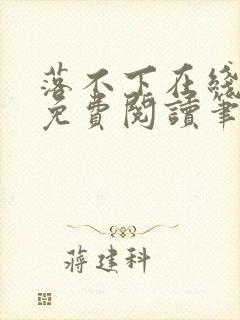 落不下在綫
免費閱讀筆
蔣建科